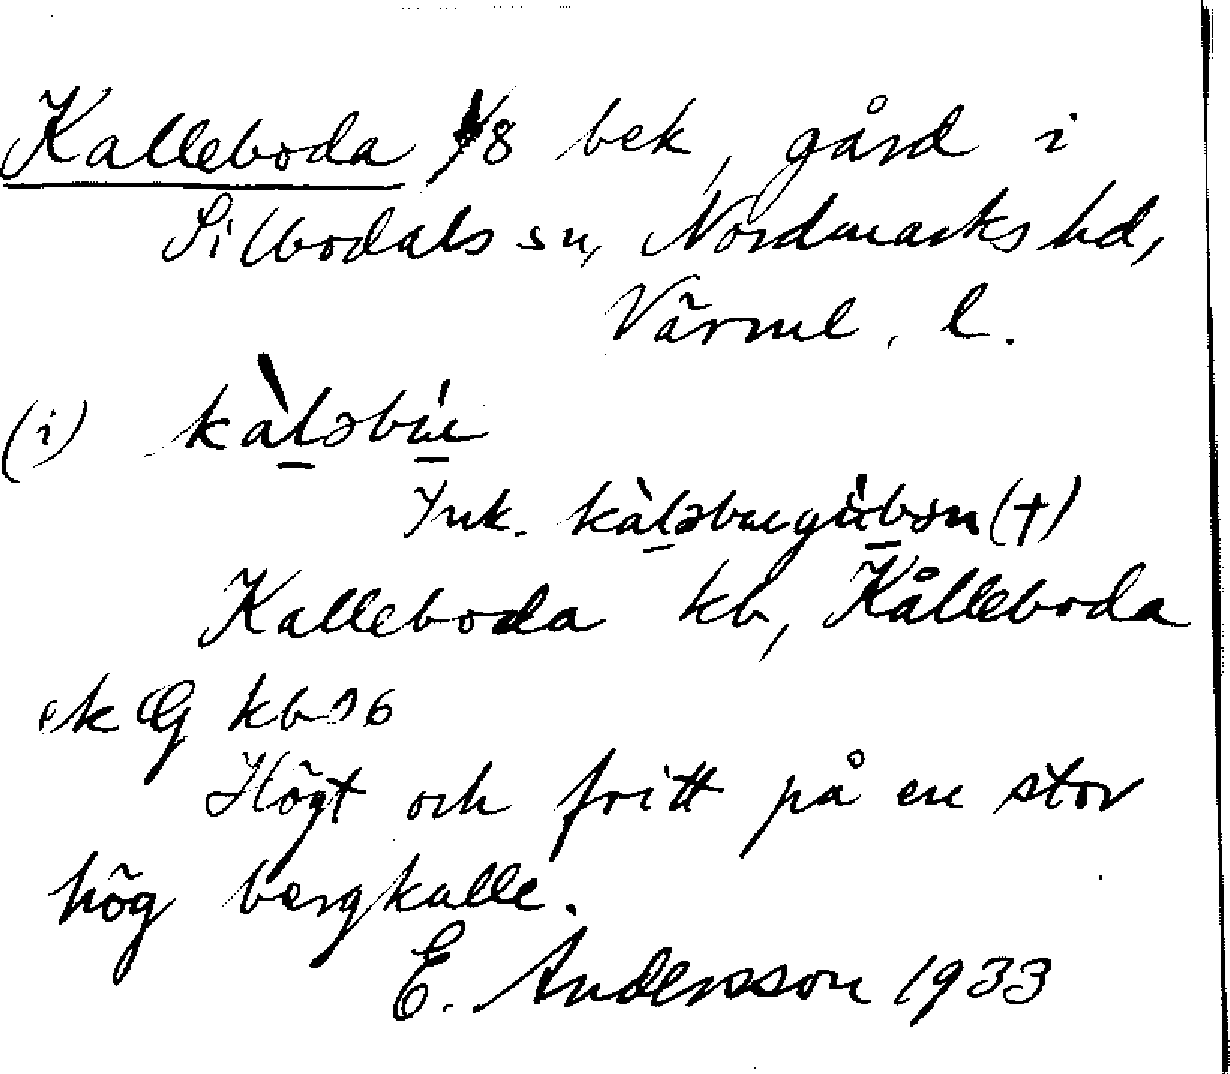 Kalleboda 1/8 bek, gård i
Silbodals sn, Nordmarks hd,
Värml. l.
(i) kàləbu
Ynk. (†)
Kalleboda kb, Kålleboda
ek G kb 96
Högt och fritt på en stor
hög bergkulle.
E. Andersson 1933